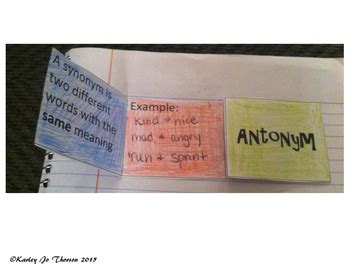 A synonym is
two different
words with the
same meaning
Example:
kind & nice
mad & angry
run & sprint
ANtONyM
©Karley Jo Thorson 2013